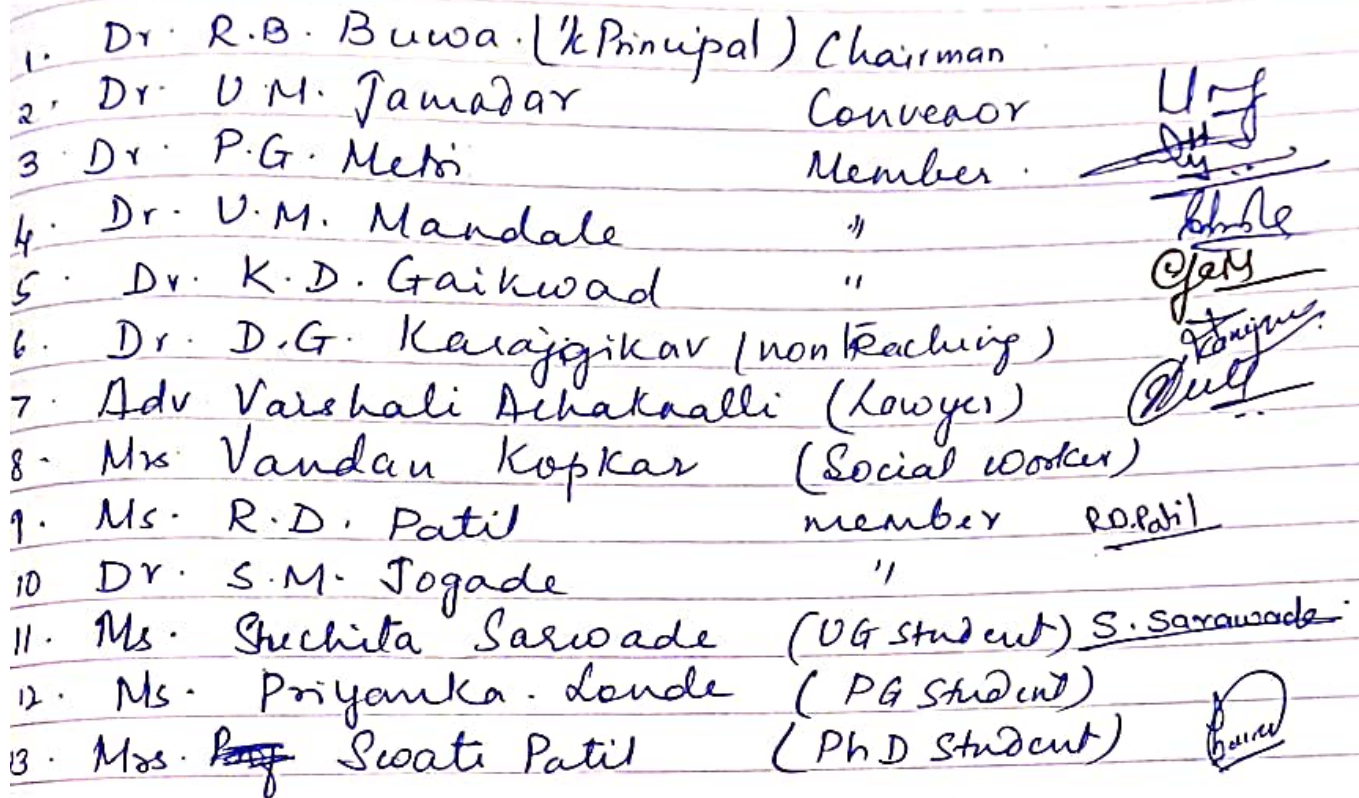 1. Dr. R.B. Buwa. (I/c Principal) Chairman
2. Dr. U.M. Jamadar Convenor
3. Dr. P.G. Metri Member.
4. Dr. V.M. Mandale "
5. Dr. K.D. Gaikwad "
6. Dr. D.G. Karajgikar (non teaching)
7. Adv Vaishali (Lawyer)
8- Mrs Vandan Kopkar (Social worker)
9. Ms. R.D. Patil member R.D.Patil
10 Dr. S.M. Jogade "
11. Ms. Suchita Sarwade (UG student) S. Sarawade
12. Ms. Priyanka. Londe (PG Student)
13. Mrs. Swati Patil (PhD Student)